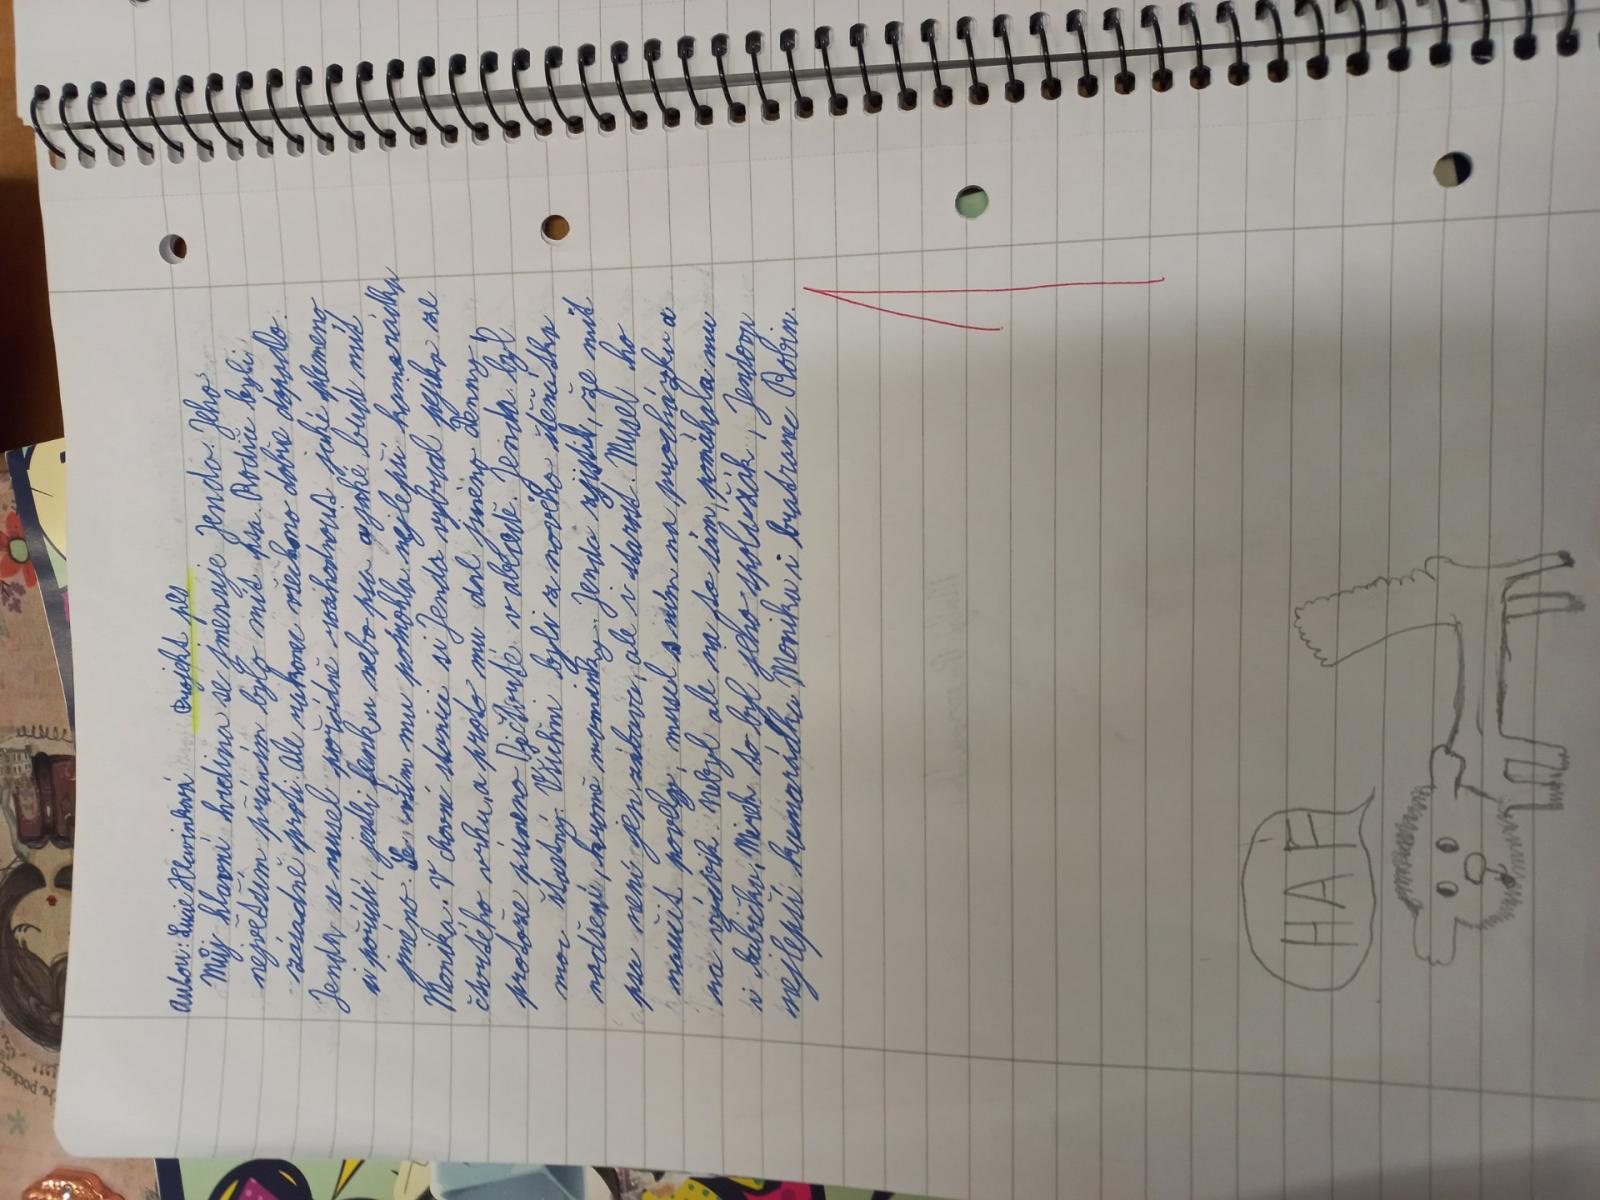 Autor: Lucie Hlavinková Projekt pes
Můj hlavní hrdina se jmenuje Jenda. Jeho
největším přáním bylo mít psa. Rodiče byli
zásadně proti. Ale nakonec všechno dobře dopadlo.
Jenda se musel pořádně rozhodnout jaké plemeno
si pořídí, jestli fenku nebo psa a jaké bude mít
jméno. Se vším mu pomohla nejlepší kamarádka
Monika. V chovné stanici si Jenda vybral pejska ze
čtvrtého vrhu a proto mu dal jméno Denny,
protože písmeno D je čtvrté v abecedě. Jenda byl
moc šťastný. Všichni byli z nového štěňátka
nadšení, kromě maminky. Jenda zjistil, že mít
psa není jen zábava, ale i starost. Musel ho
naučit povely, musel s ním na procházku a
na výcvik. Nebyl ale na to sám, pomáhala mu
i babička, Mirek to byl jeho spolužák, Jendova
nejlepší kamarádka Monika i bratranec Robin.
HAF
the pocket